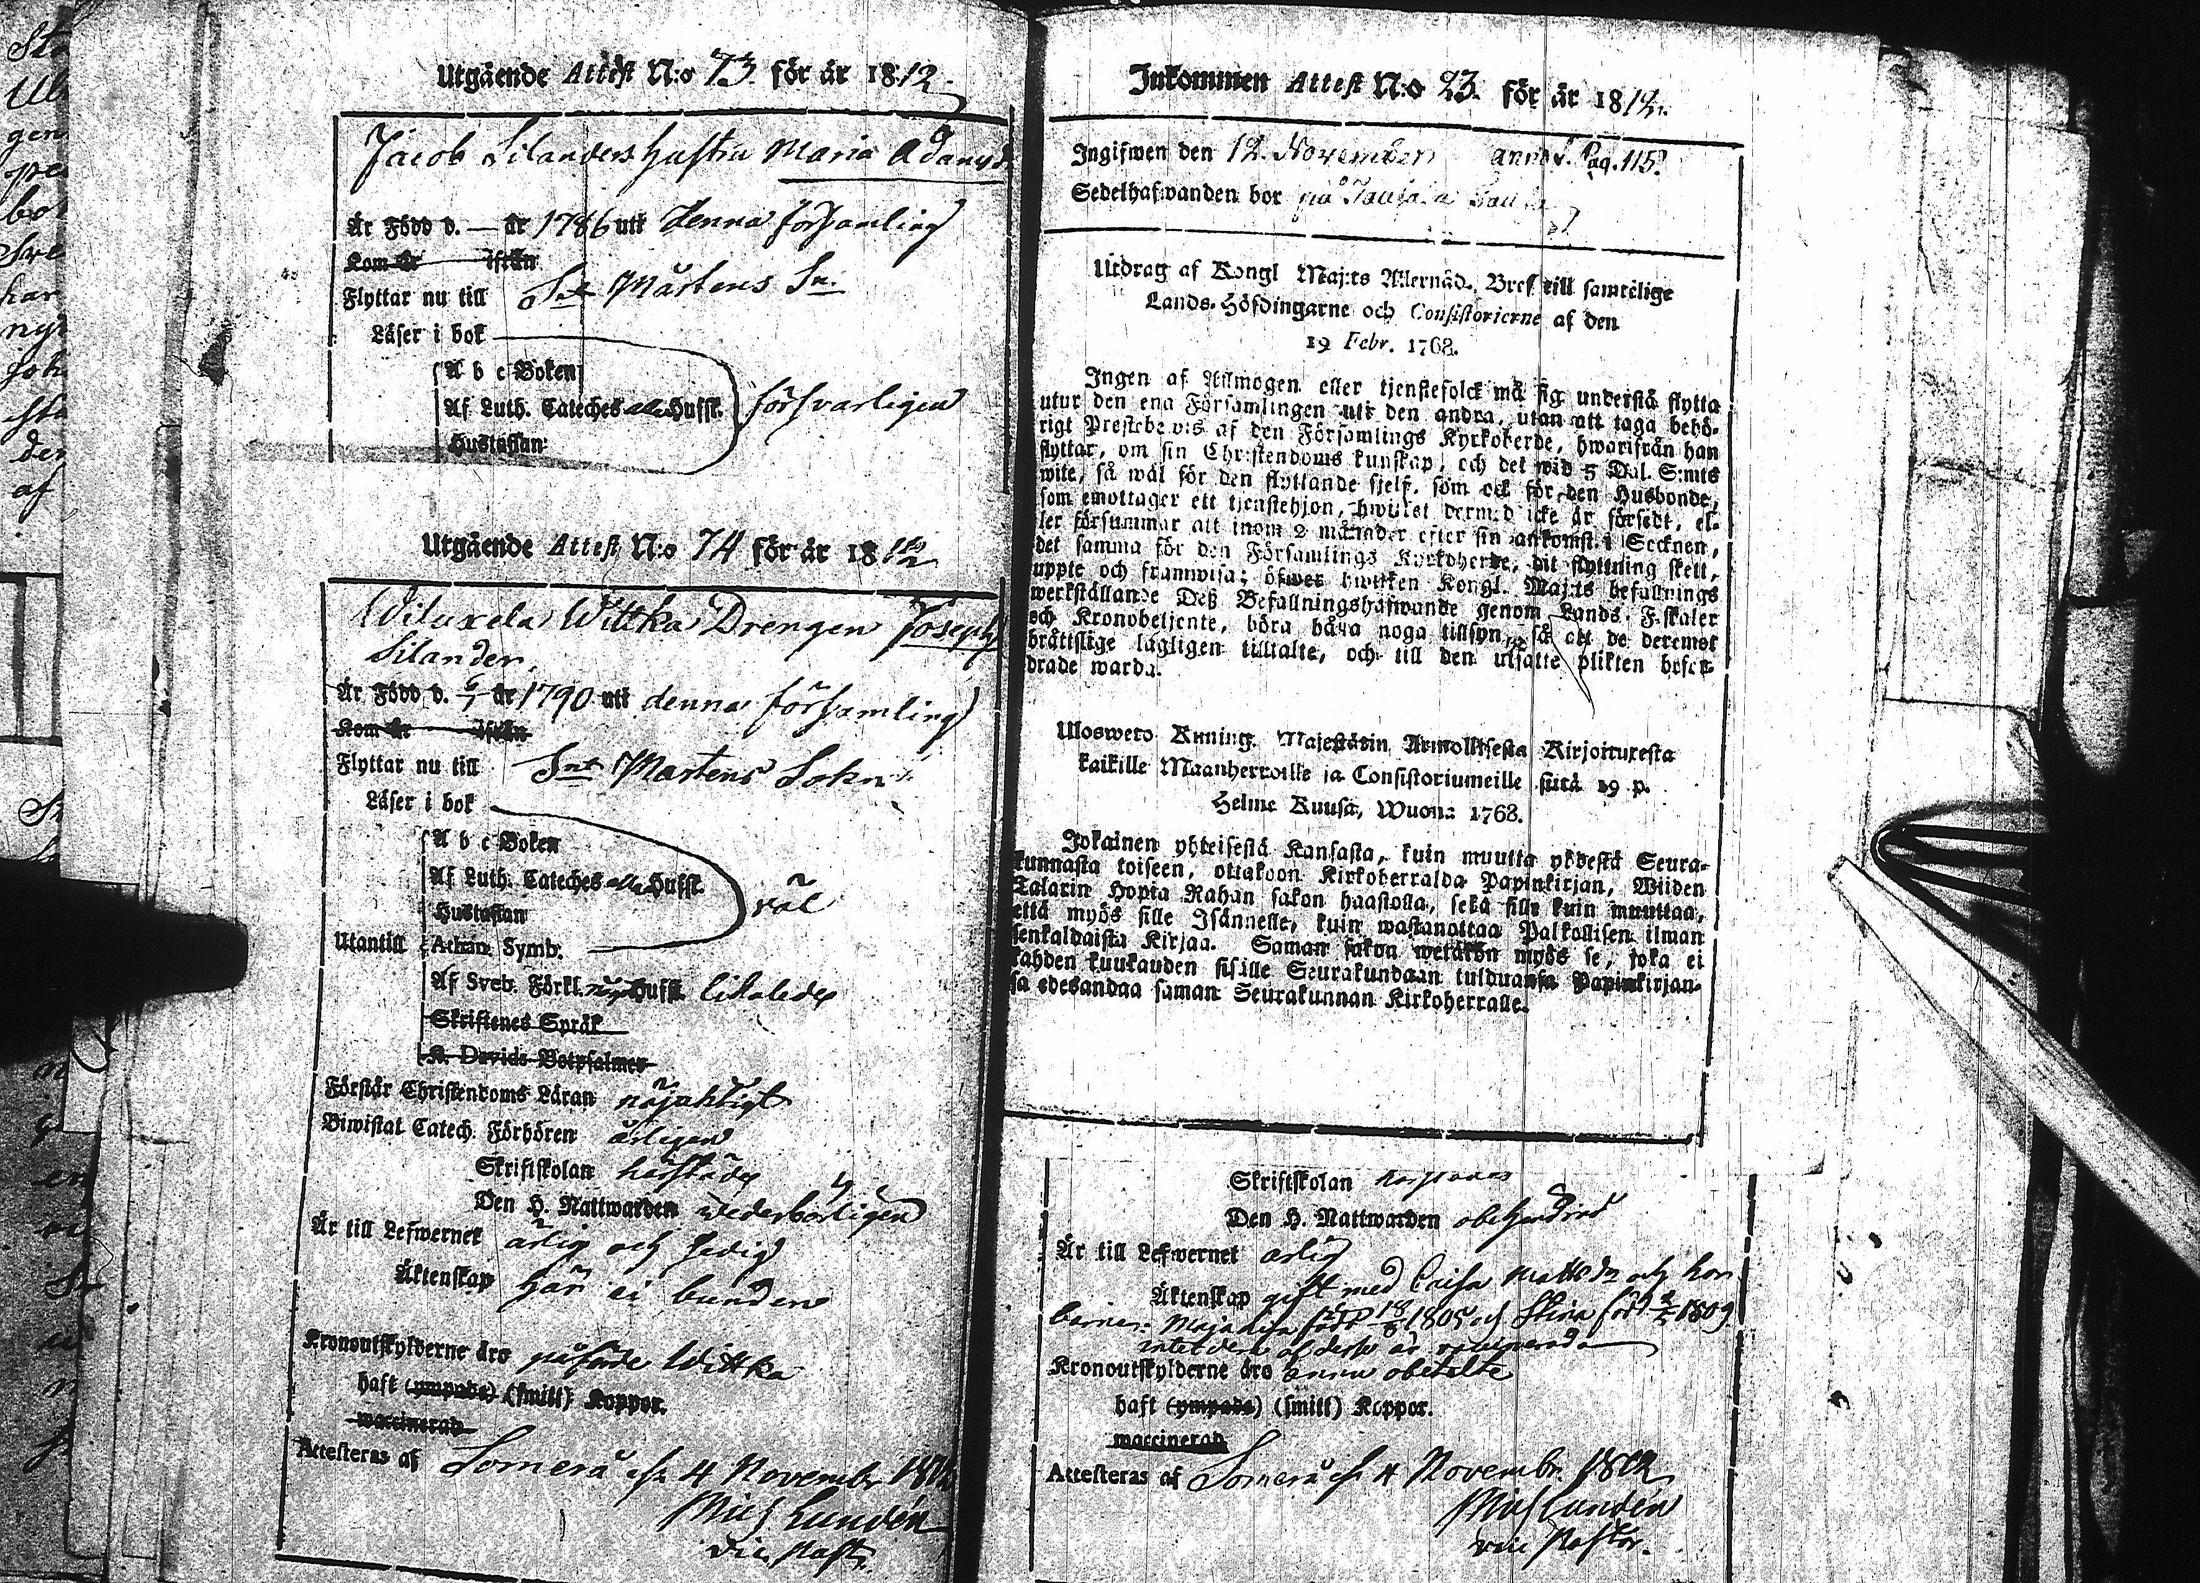 Utgående Attest N:o 73 för år 1812.
Jacob Silanders hustru Maria Adamsd:
Är Född d. — år 1786 uti denna församling
Kom år ifrån
Flyttar nu till Snt Mårtens Sn.
Läser i bok
A b c Boken
Af Luth. Cateches alla Hufst. försvarligen
Hustaflan
Utgående Attest N:o 74 för år 1812
Wiluxela Wittka Drengen Joseph
Silander.
Är Född d. år 1790 uti denna församling
Kom år ifrån
Flyttar nu till Snt Martens Sokn
Läser i bok
A b c Boken
Af Luth. Cateches alla Hufst.
Hustaflan väl
Utantill Athan. Symb.
Af Sveb. Förkl. Hufst. likaledes
Skriftenes Språk
K. Davids Botpsalmer
Förstår Christendoms Läran nöjaktigt
Biwistat Catech. Förhören årligen
Skriftskolan härstädes
Den H. Nattwarden wederbörligen
Är till Lefwernet ärlig och sedig
Äktenskap här ei bunden
Kronoutskylderne äro påförde Wittka
haft (ympade) (smitt) Koppor.
waccinerad
Attesteras af Somerå d. 4 Novembr 1812
Mich Lundén
vice Past.
Inkommen Attest N:o 23. för år 1812.
Ingifwen den 12. November annot. Pag. 115.
Sedelhafwanden bor på
Utdrag af Kongl Maj:ts Allernåd. Bref till samtelige
Lands-Höfdingarne och Consistorierne af den
19 Febr. 1768.
Ingen af Allmogen eller tjenstefolck må sig understå flytta
utur den ena Församlingen uti den andra, utan att taga behö-
rigt Prestebewis af den Församlings Kyrkoherde, hwarifrån han
flyttar, om sin Christendoms kunskap, och det wid 5 Dal. S:mts
wite, så wäl för den flyttande sjelf, som ock för den Husbonde,
som emottager ett tjenstehjon, hwilket dermed icke är försedt, el-
ler försummar att inom 2 månader efter sin ankomst i Socknen,
det samma för den Församlings Kyrkoherde, dit flyttning skett,
uppte och framwisa; öfwer hwilken Kongl. Maj:ts befallnings
werkställande Deß Befallningshafwande genom Lands-Fiskaler
och Kronobetjente, böra håfwa noga tillsyn, så att de deremot
bråttslige lagligen tilltalte, och till den utsatte plikten befor-
drade warda.
Uloswеto Kuning. Majestätin Armollisesta Kirjoituxesta
kaikille Maanherroille ja Consistoriumeille siitä 19 p.
Helme Kuusa, Wuonna 1768.
Jokainen yhteisestä Kansasta, kuin muutta yhdestä Seura-
kunnasta toiseen, ottakoon Kirkoherralda Papinkirjan, Wiiden
Talarin Hopia Rahan sakon haastolla, sekä sille kuin muuttaa,
että myös sille Isännelle, kuin wastanottaa Palkollisen ilman
senkaldaista Kirjaa. Saman sakon wetäkön myös se, joka ei
kahden kuukauden sisälle Seurakundaan tulduansa Papinkirjan-
sa edesandaa saman Seurakunnan Kirkoherralle.
Skriftskolan
Den H. Nattwarden obehindrad
Är till Lefwernet ärlig
Äktenskap gift med Caisa Mattsdr och har
barnen: Maja Lisa född 18/8 1805 och Stina född 1809
intetdera af dessa är vaccinerad
Kronoutskylderne äro ännu obetalte
haft (ympade) (smitt) Koppor.
waccinerad
Attesteras af Somerå d. 4 Novembr. 1812
Mich Lundén
vice Pastor.